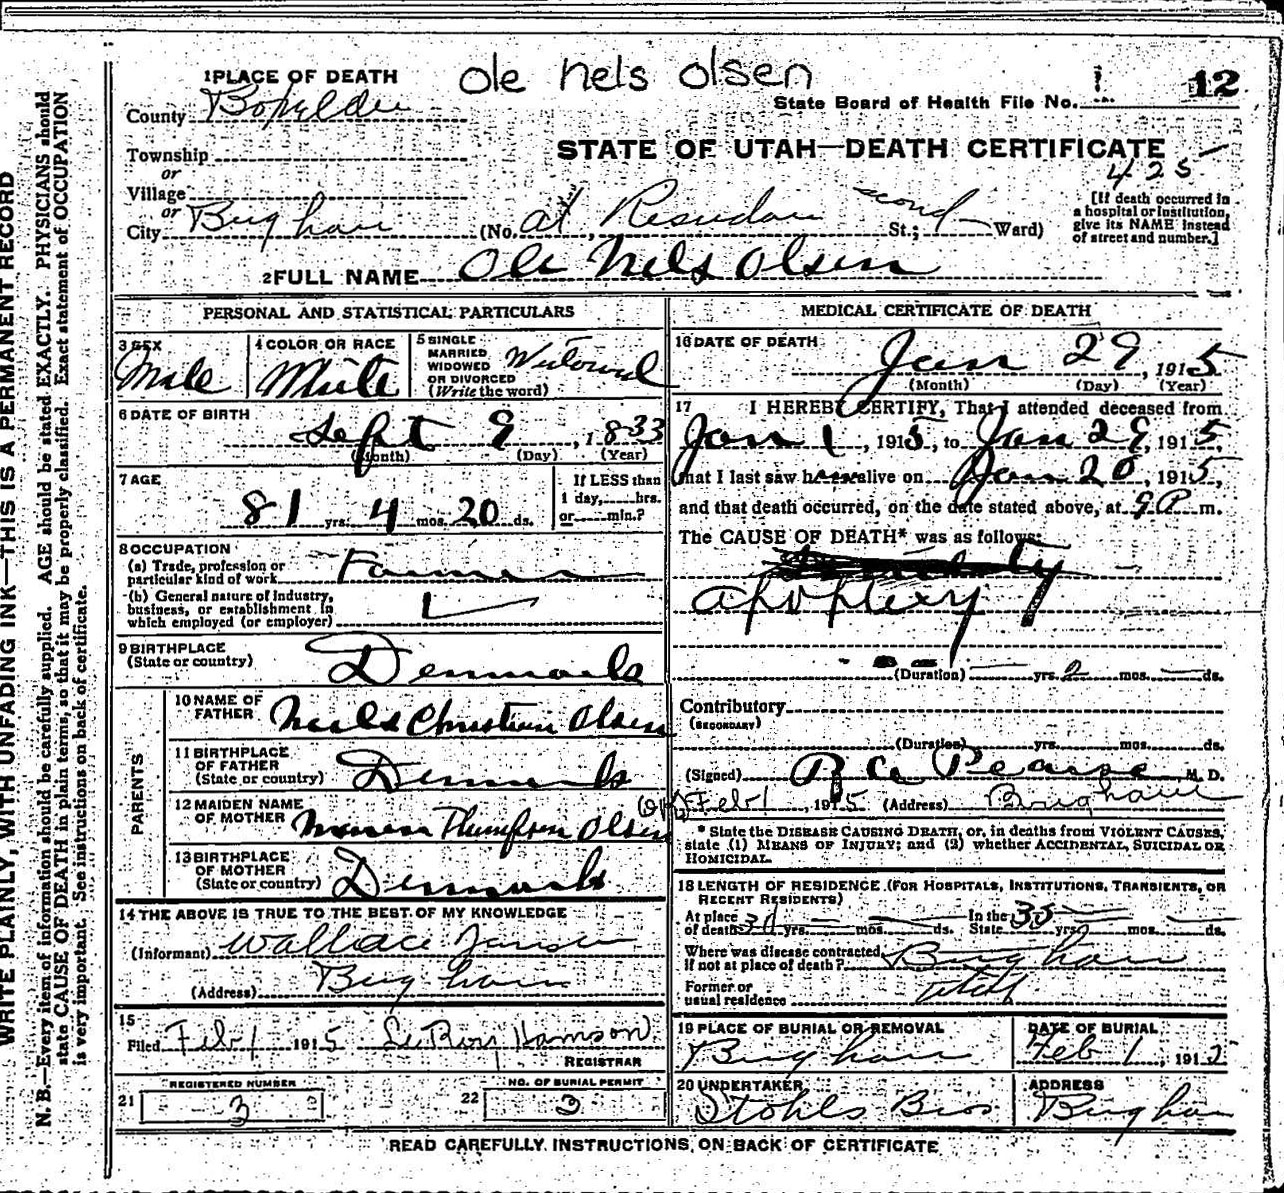 ole nels olsen
1 PLACE OF DEATH
County Boxelder
State Board of Health File No. 12
Township
or
Village
or
City Brigham
STATE OF UTAH—DEATH CERTIFICATE
425
(No. at St.; second Ward)
[If death occurred in a hospital or institution, give its NAME instead of street and number.]
2 FULL NAME Ole Nels Olsen
PERSONAL AND STATISTICAL PARTICULARS
3 SEX Male
4 COLOR OR RACE White
5 SINGLE MARRIED WIDOWED OR DIVORCED (Write the word) Widowed
6 DATE OF BIRTH
Sept 9, 1833
(Month) (Day) (Year)
7 AGE
81 yrs. 4 mos. 20 ds.
If LESS than 1 day, hrs. or min.?
8 OCCUPATION
(a) Trade, profession or particular kind of work Farmer
(b) General nature of Industry, business, or establishment in which employed (or employer)
9 BIRTHPLACE
(State or country) Denmark
PARENTS
10 NAME OF FATHER Niels Christian Olsen
11 BIRTHPLACE OF FATHER (State or country) Denmark
12 MAIDEN NAME OF MOTHER Thompson Olsen
13 BIRTHPLACE OF MOTHER (State or country) Denmark
14 THE ABOVE IS TRUE TO THE BEST OF MY KNOWLEDGE
(Informant) Wallace Jensen
(Address) Brigham
15
Filed Feb 1 1915
REGISTRAR
REGISTERED NUMBER
21 3
NO. OF BURIAL PERMIT
22 3
MEDICAL CERTIFICATE OF DEATH
16 DATE OF DEATH
Jan 29, 1915
(Month) (Day) (Year)
17 I HEREBY CERTIFY, That I attended deceased from
Jan 1, 1915, to Jan 29, 1915
that I last saw h alive on Jan 20, 1915,
and that death occurred, on the date stated above, at 9 P. m.
The CAUSE OF DEATH* was as follows:
apoplexy
(Duration) yrs. 2 mos. ds.
Contributory
(SECONDARY)
(Duration) yrs. mos. ds.
(Signed) Pearse, M. D.
Feb 1, 1915 (Address) Brigham
* State the DISEASE CAUSING DEATH, or, in deaths from VIOLENT CAUSES,
state (1) MEANS OF INJURY; and (2) whether ACCIDENTAL, SUICIDAL OR
HOMICIDAL.
18 LENGTH OF RESIDENCE (FOR HOSPITALS, INSTITUTIONS, TRANSIENTS, OR
RECENT RESIDENTS)
At place of death yrs. mos. ds. In the State 35 yrs. mos. ds.
Where was disease contracted, If not at place of death? Brigham
Former or usual residence Utah
19 PLACE OF BURIAL OR REMOVAL
Brigham
DATE OF BURIAL
Feb 1, 191
20 UNDERTAKER
Stohls Bros
ADDRESS
Brigham
READ CAREFULLY INSTRUCTIONS ON BACK OF CERTIFICATE
WRITE PLAINLY, WITH UNFADING INK—THIS IS A PERMANENT RECORD
N. B.—Every item of information should be carefully supplied. AGE should be stated EXACTLY. PHYSICIANS should
state CAUSE OF DEATH in plain terms, so that it may be properly classified. Exact statement of OCCUPATION
is very important. See instructions on back of certificate.